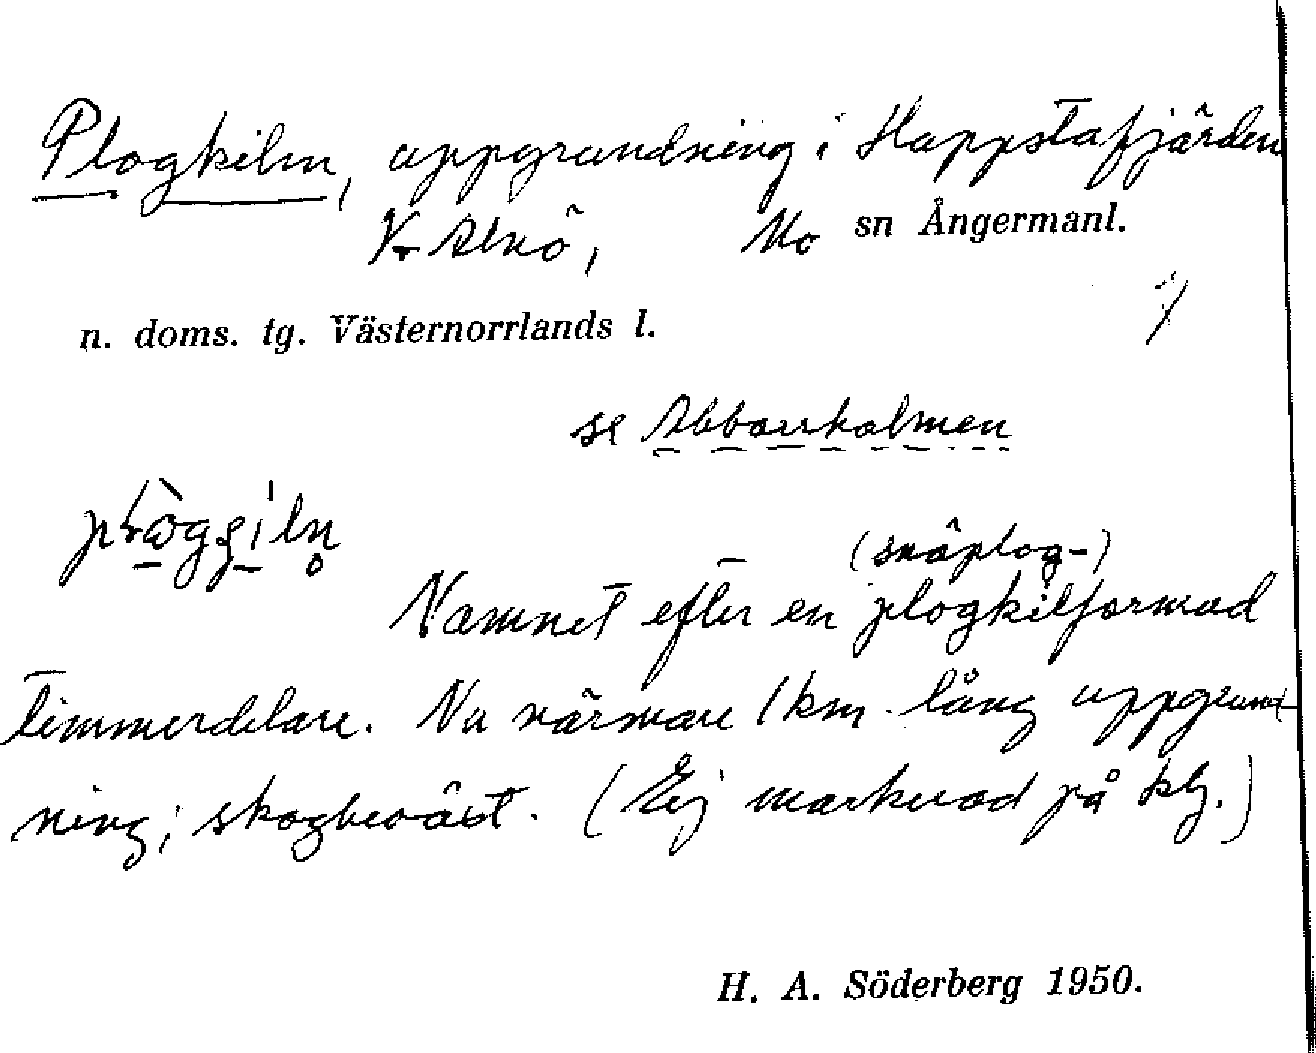 Plogkiln, uppgrundning i Happstafjärden
V. Alnö, Mo sn Ångermanl.
n. doms. tg. Västernorrlands l.
se Abborrholmen
(snöplog-)
Namnet efter en plogkilformad
timmerdelare. Nu närmare 1 km. lång uppgrund-
ning; skogbeväxt. (Ej markerad på kbl.)
H. A. Söderberg 1950.